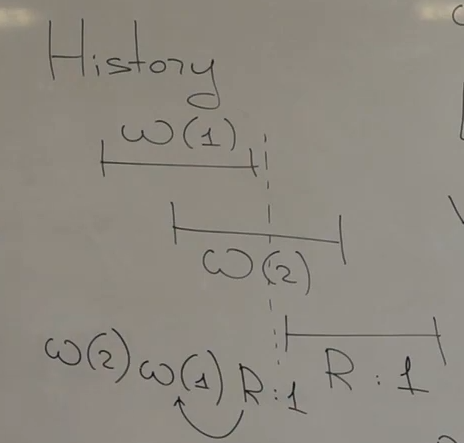 History
ω(1)
ω(2)
R:1
ω(2) ω(1) R:1